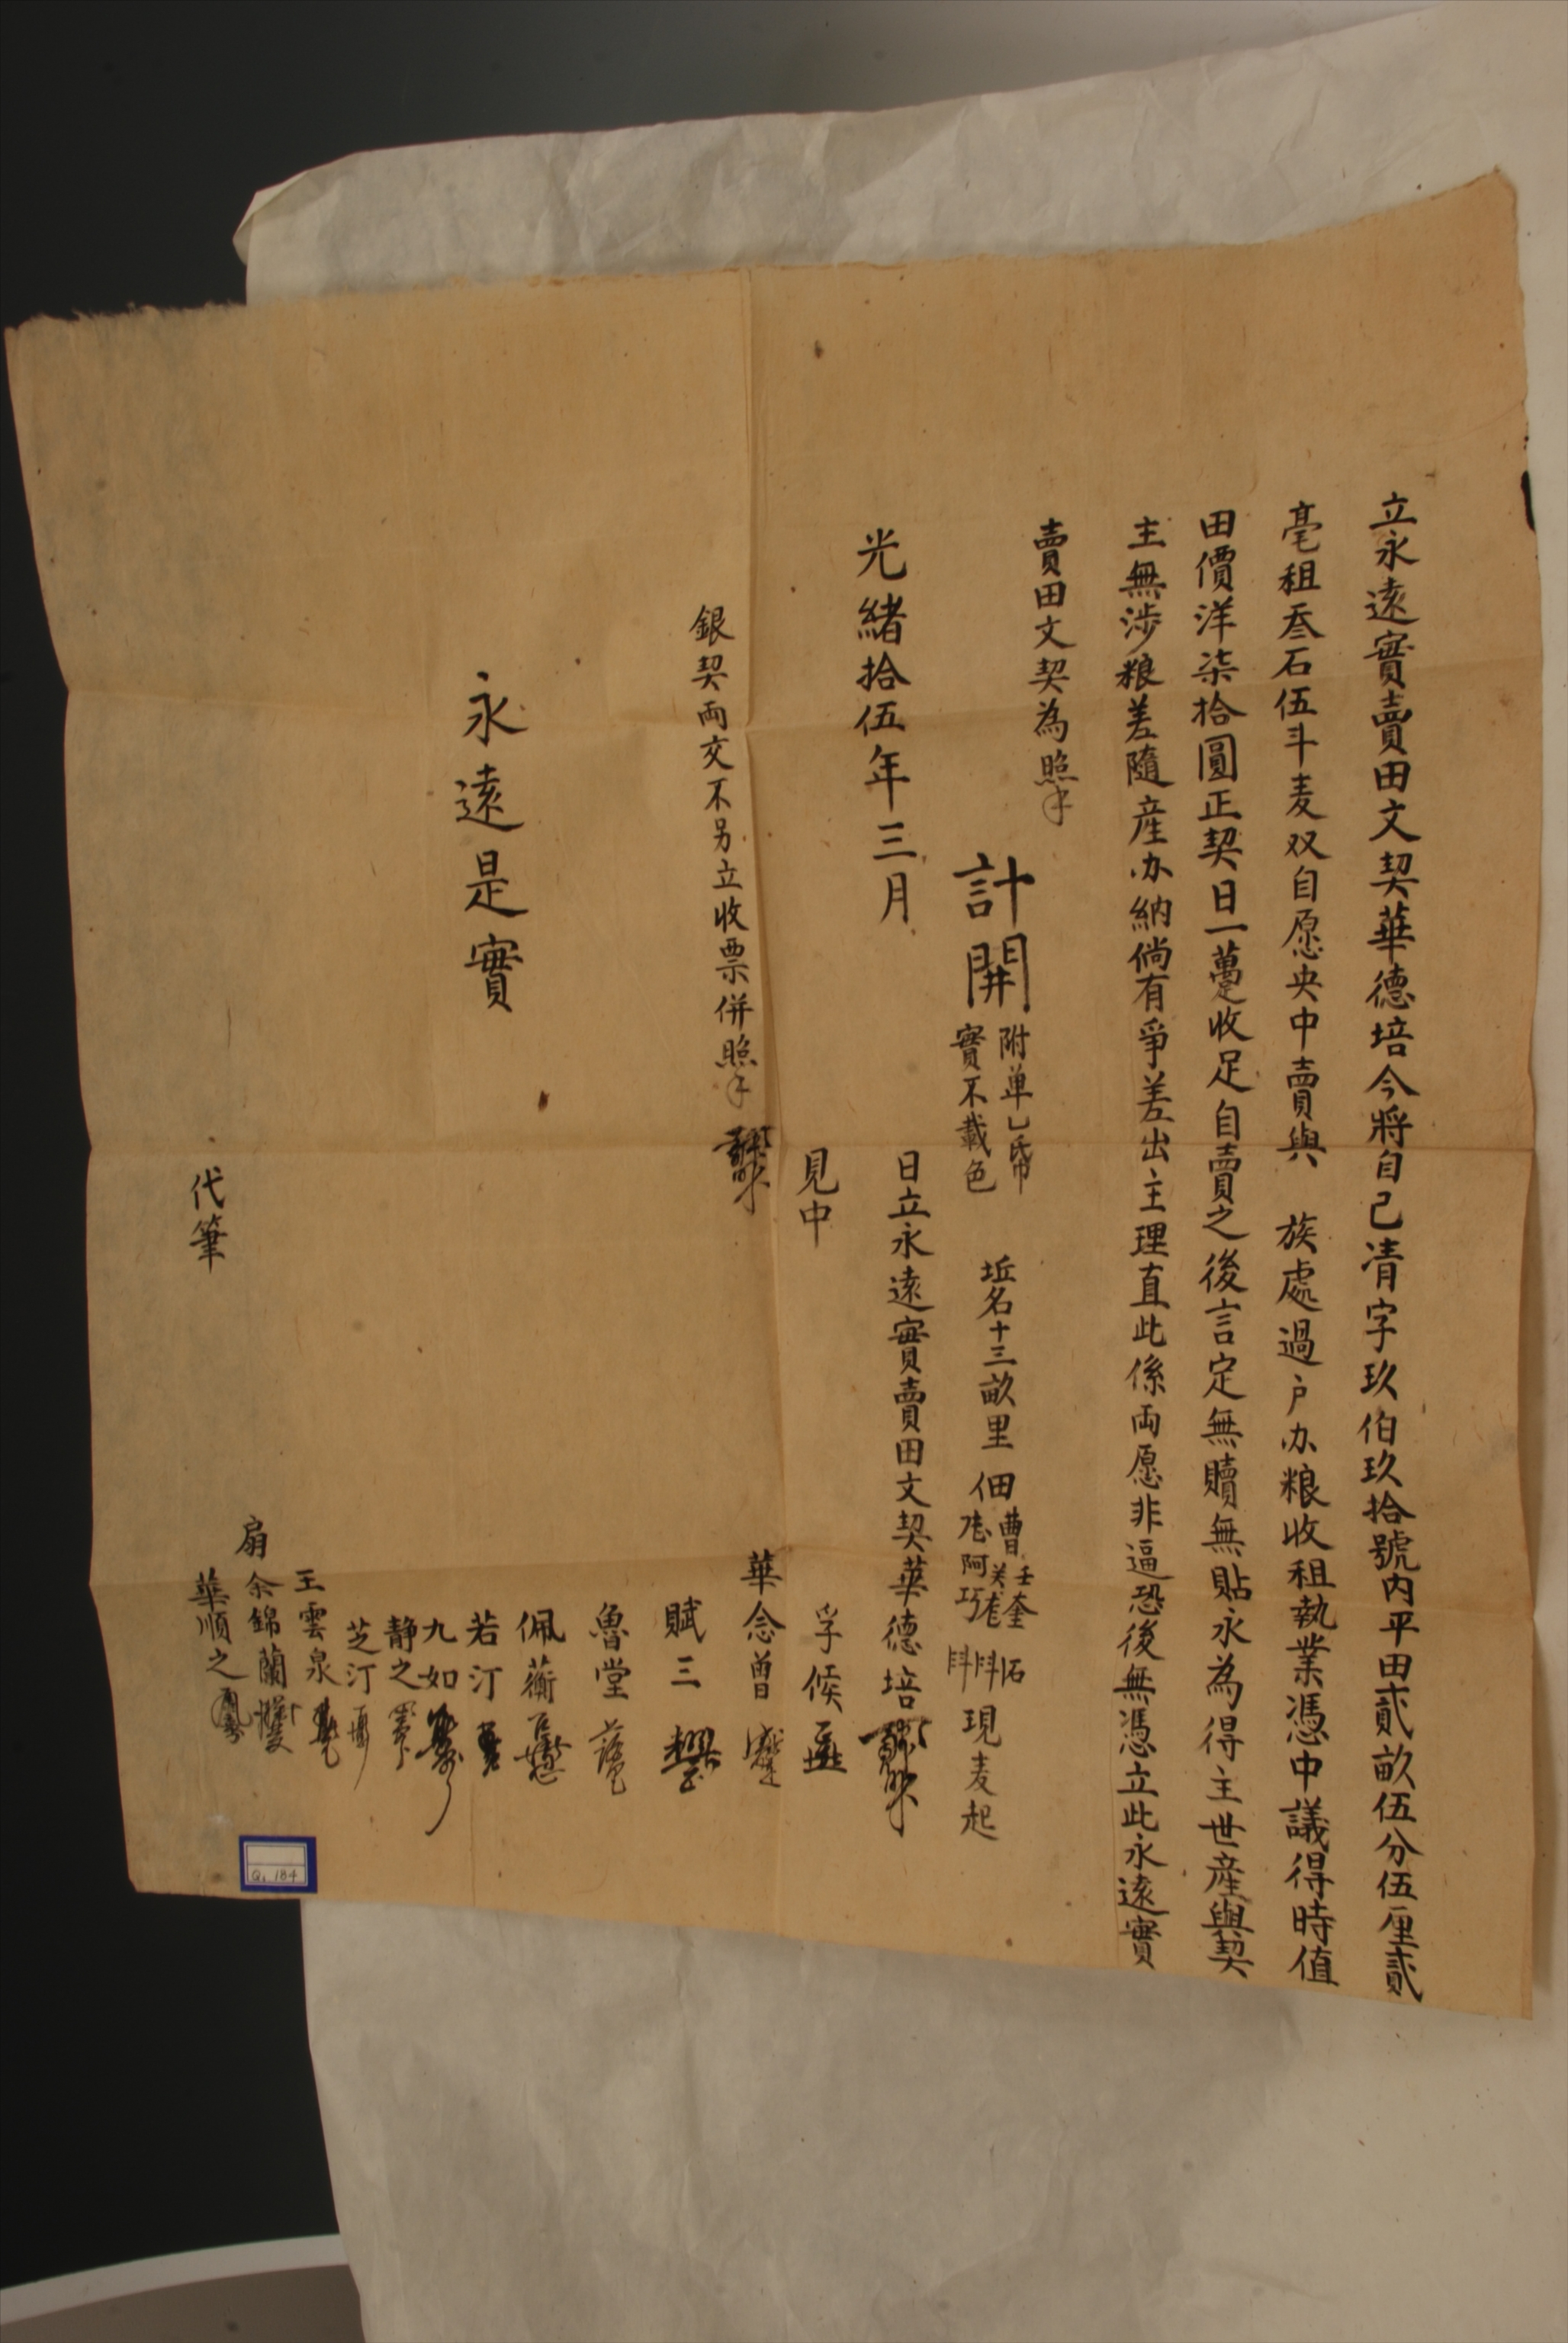 立永遠實賣田文契華德培今將自己凊字玖伯玖拾號內平田貳畝伍分伍厘貳
毫租叁石伍斗麦双自愿央中賣與 族處過户办粮收租執業憑中議得時值
田價洋柒拾圓正契日一躉收足自賣之後言定無贖無貼永為得主世產與契
主無涉粮差隨產办納倘有爭差出主理直此係両愿非逼恐後無憑立此永遠實
賣田文契為照
計開 附单乙帋 坵名十三畝里 佃 曹 現麦起
實不載色 阿巧
光緒拾伍年三月 日立永遠實賣田文契華德培
見中 孚候
華念曾
銀契両交不另立收票併照
賦三
魯堂
佩蘅
永遠是實
若汀
九如
静之
芝汀
王雲泉
余錦蘭
扇
代筆 華順之
Q, 184